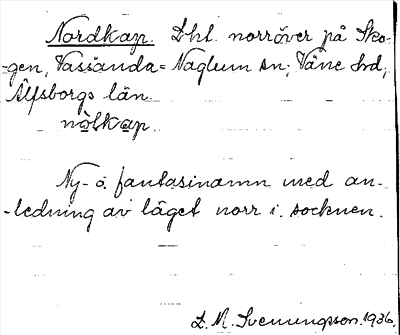 Nordkap. Lht. norröver på Sko-
-gen, Vassända-Naglum sn; Väne hd,
Älfsborgs län.
nòlkap.
Ny- o. fantasinamn med an-
-ledning av läget norr i. socknen.
L. M. Svenungsson. 1936.